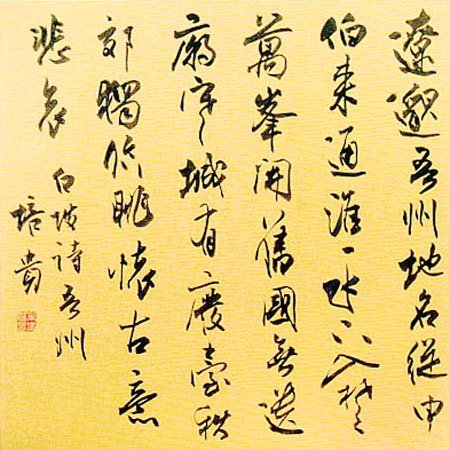 遼邈吾州地名從申
伯来通淮一水下入楚
萬峯開舊國無遗
廟空城有廢臺秋
郊獨眺懷古意
悲哀
白坡詩吾州
培貴